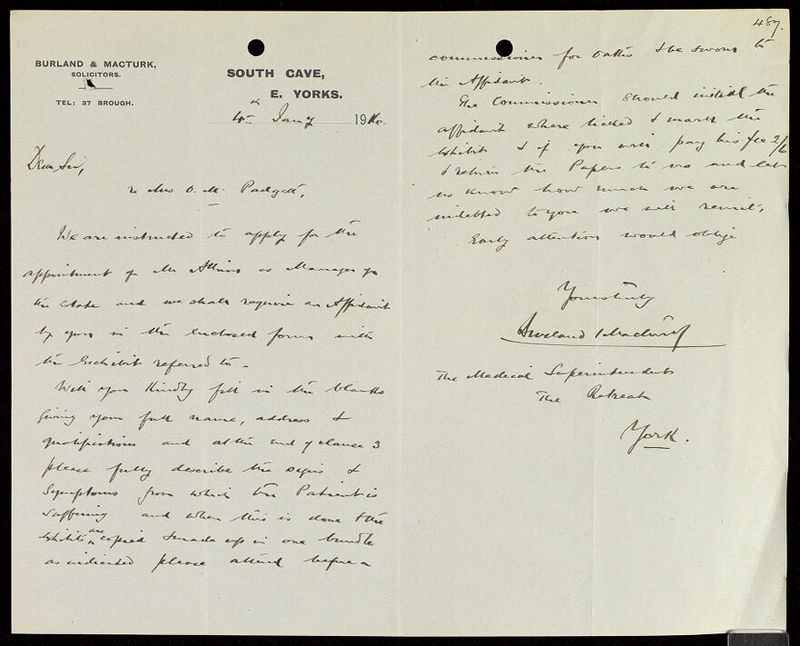 BURLAND & MACTURK,
SOLICITORS.
TEL: 37 BROUGH.
SOUTH CAVE,
E. YORKS.
4th Jany 19
Dear Sir,
re Mrs O. M. Padgett,
We are instructed to apply for the
appointment of Mr Atkins as Manager of
the estate and we shall require an Affidavit
by you in the enclosed form with
the Exhibit referred to.
Will you kindly fill in the blanks
giving your full name, address &
qualifications and at the end of clause 3
please fully describe the signs &
symptoms from which the Patient is
suffering and when this is done & the
Exhibits are copied & made up in one bundle
as indicated please attend before a
487.
commissioner for oaths & be sworn to
the Affidavit.
The Commissioner should initial the
affidavit where ticked & mark the
Exhibit & if you will pay his fee 2/6
& return the Papers to us and let
us know how much we are
indebted to you we will remit,
Early attention would oblige
Yours truly
Burland & Macturk
The Medical Superintendent
The Retreat
York.